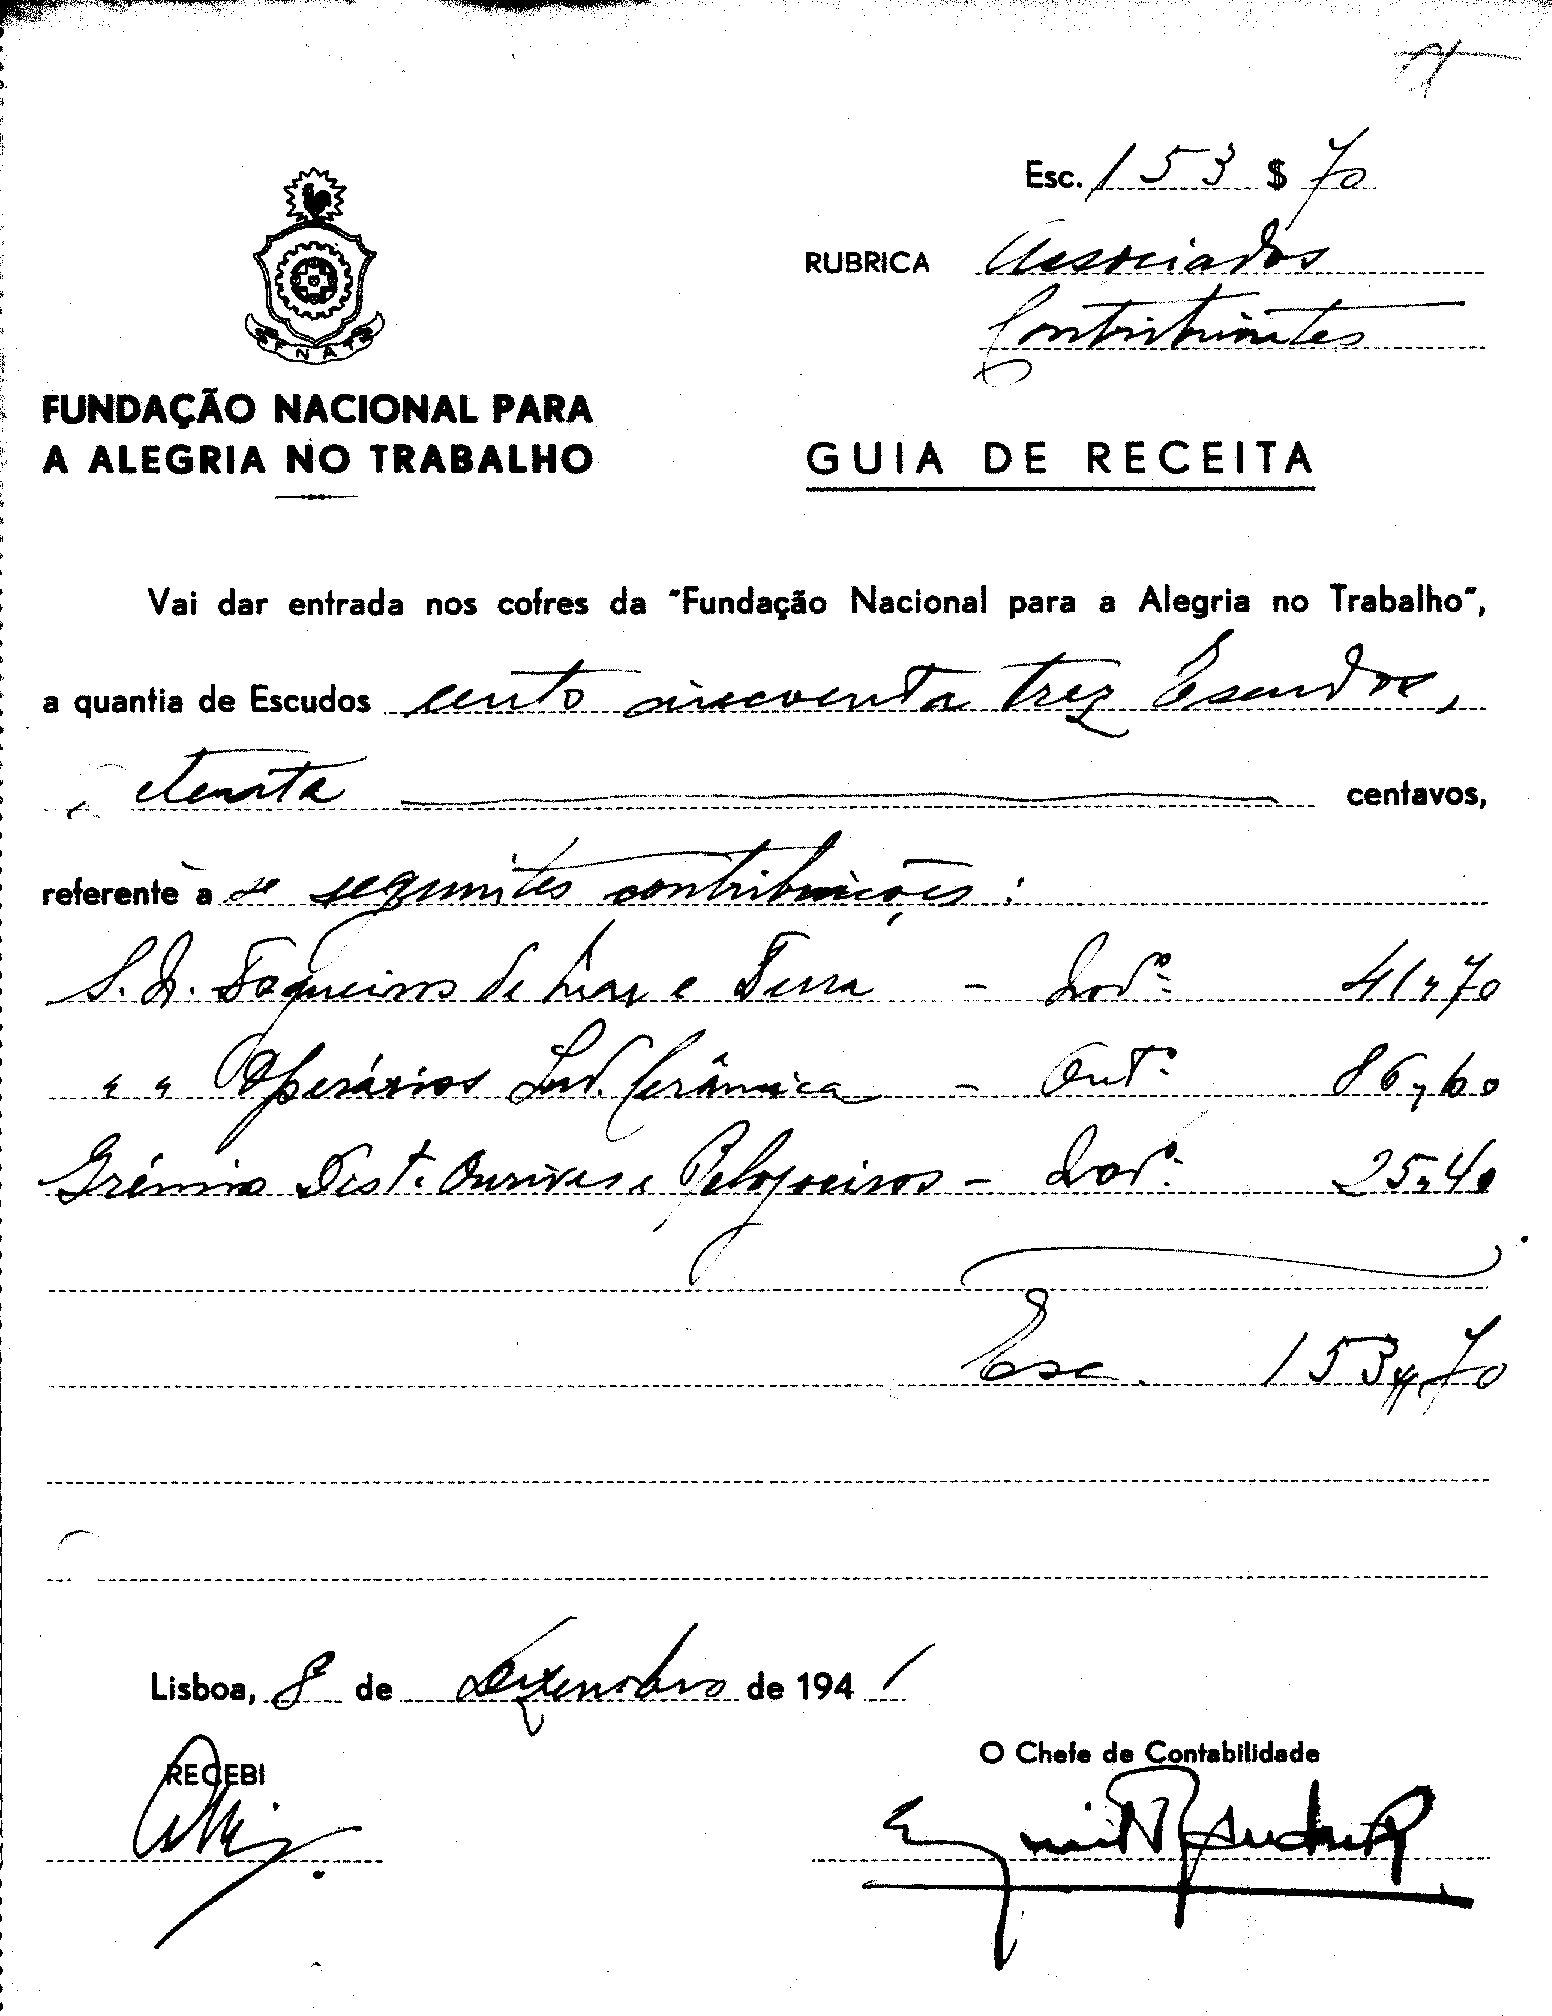 Esc. 153 $ 70
RUBRICA Associados
Contribuintes
FNAT
FUNDAÇÃO NACIONAL PARA
A ALEGRIA NO TRABALHO
GUIA DE RECEITA
Vai dar entrada nos cofres da "Fundação Nacional para a Alegria no Trabalho",
a quantia de Escudos cento cincoenta trez Escudos,
e setenta centavos,
referente à s seguintes contribuições :
S. N. Fogueiros de Mar e Terra - Novº 41,70
" " Operários Ind. Cerâmica - Outº 86,60
Grémio Dist. Ourives e Relojoeiros - Novº 25,40
Esc. 153$70
Lisboa, 8 de Dezembro de 1941
RECEBI
O Chefe de Contabilidade